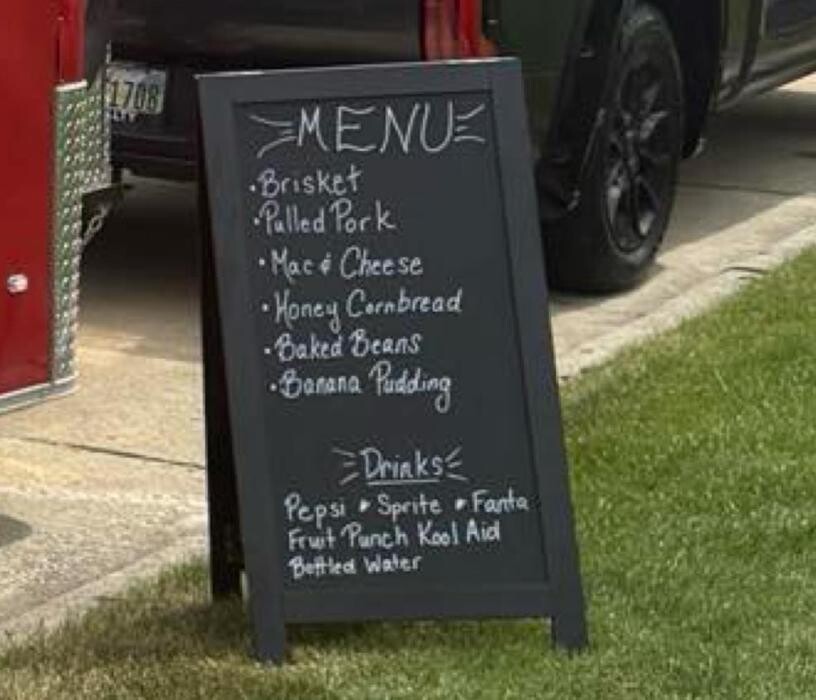 1708
MENU
·Brisket
·Pulled Pork
·Mac & Cheese
·Honey Cornbread
·Baked Beans
·Banana Pudding
Drinks
Pepsi • Sprite • Fanta
Fruit Punch Kool Aid
Bottled Water